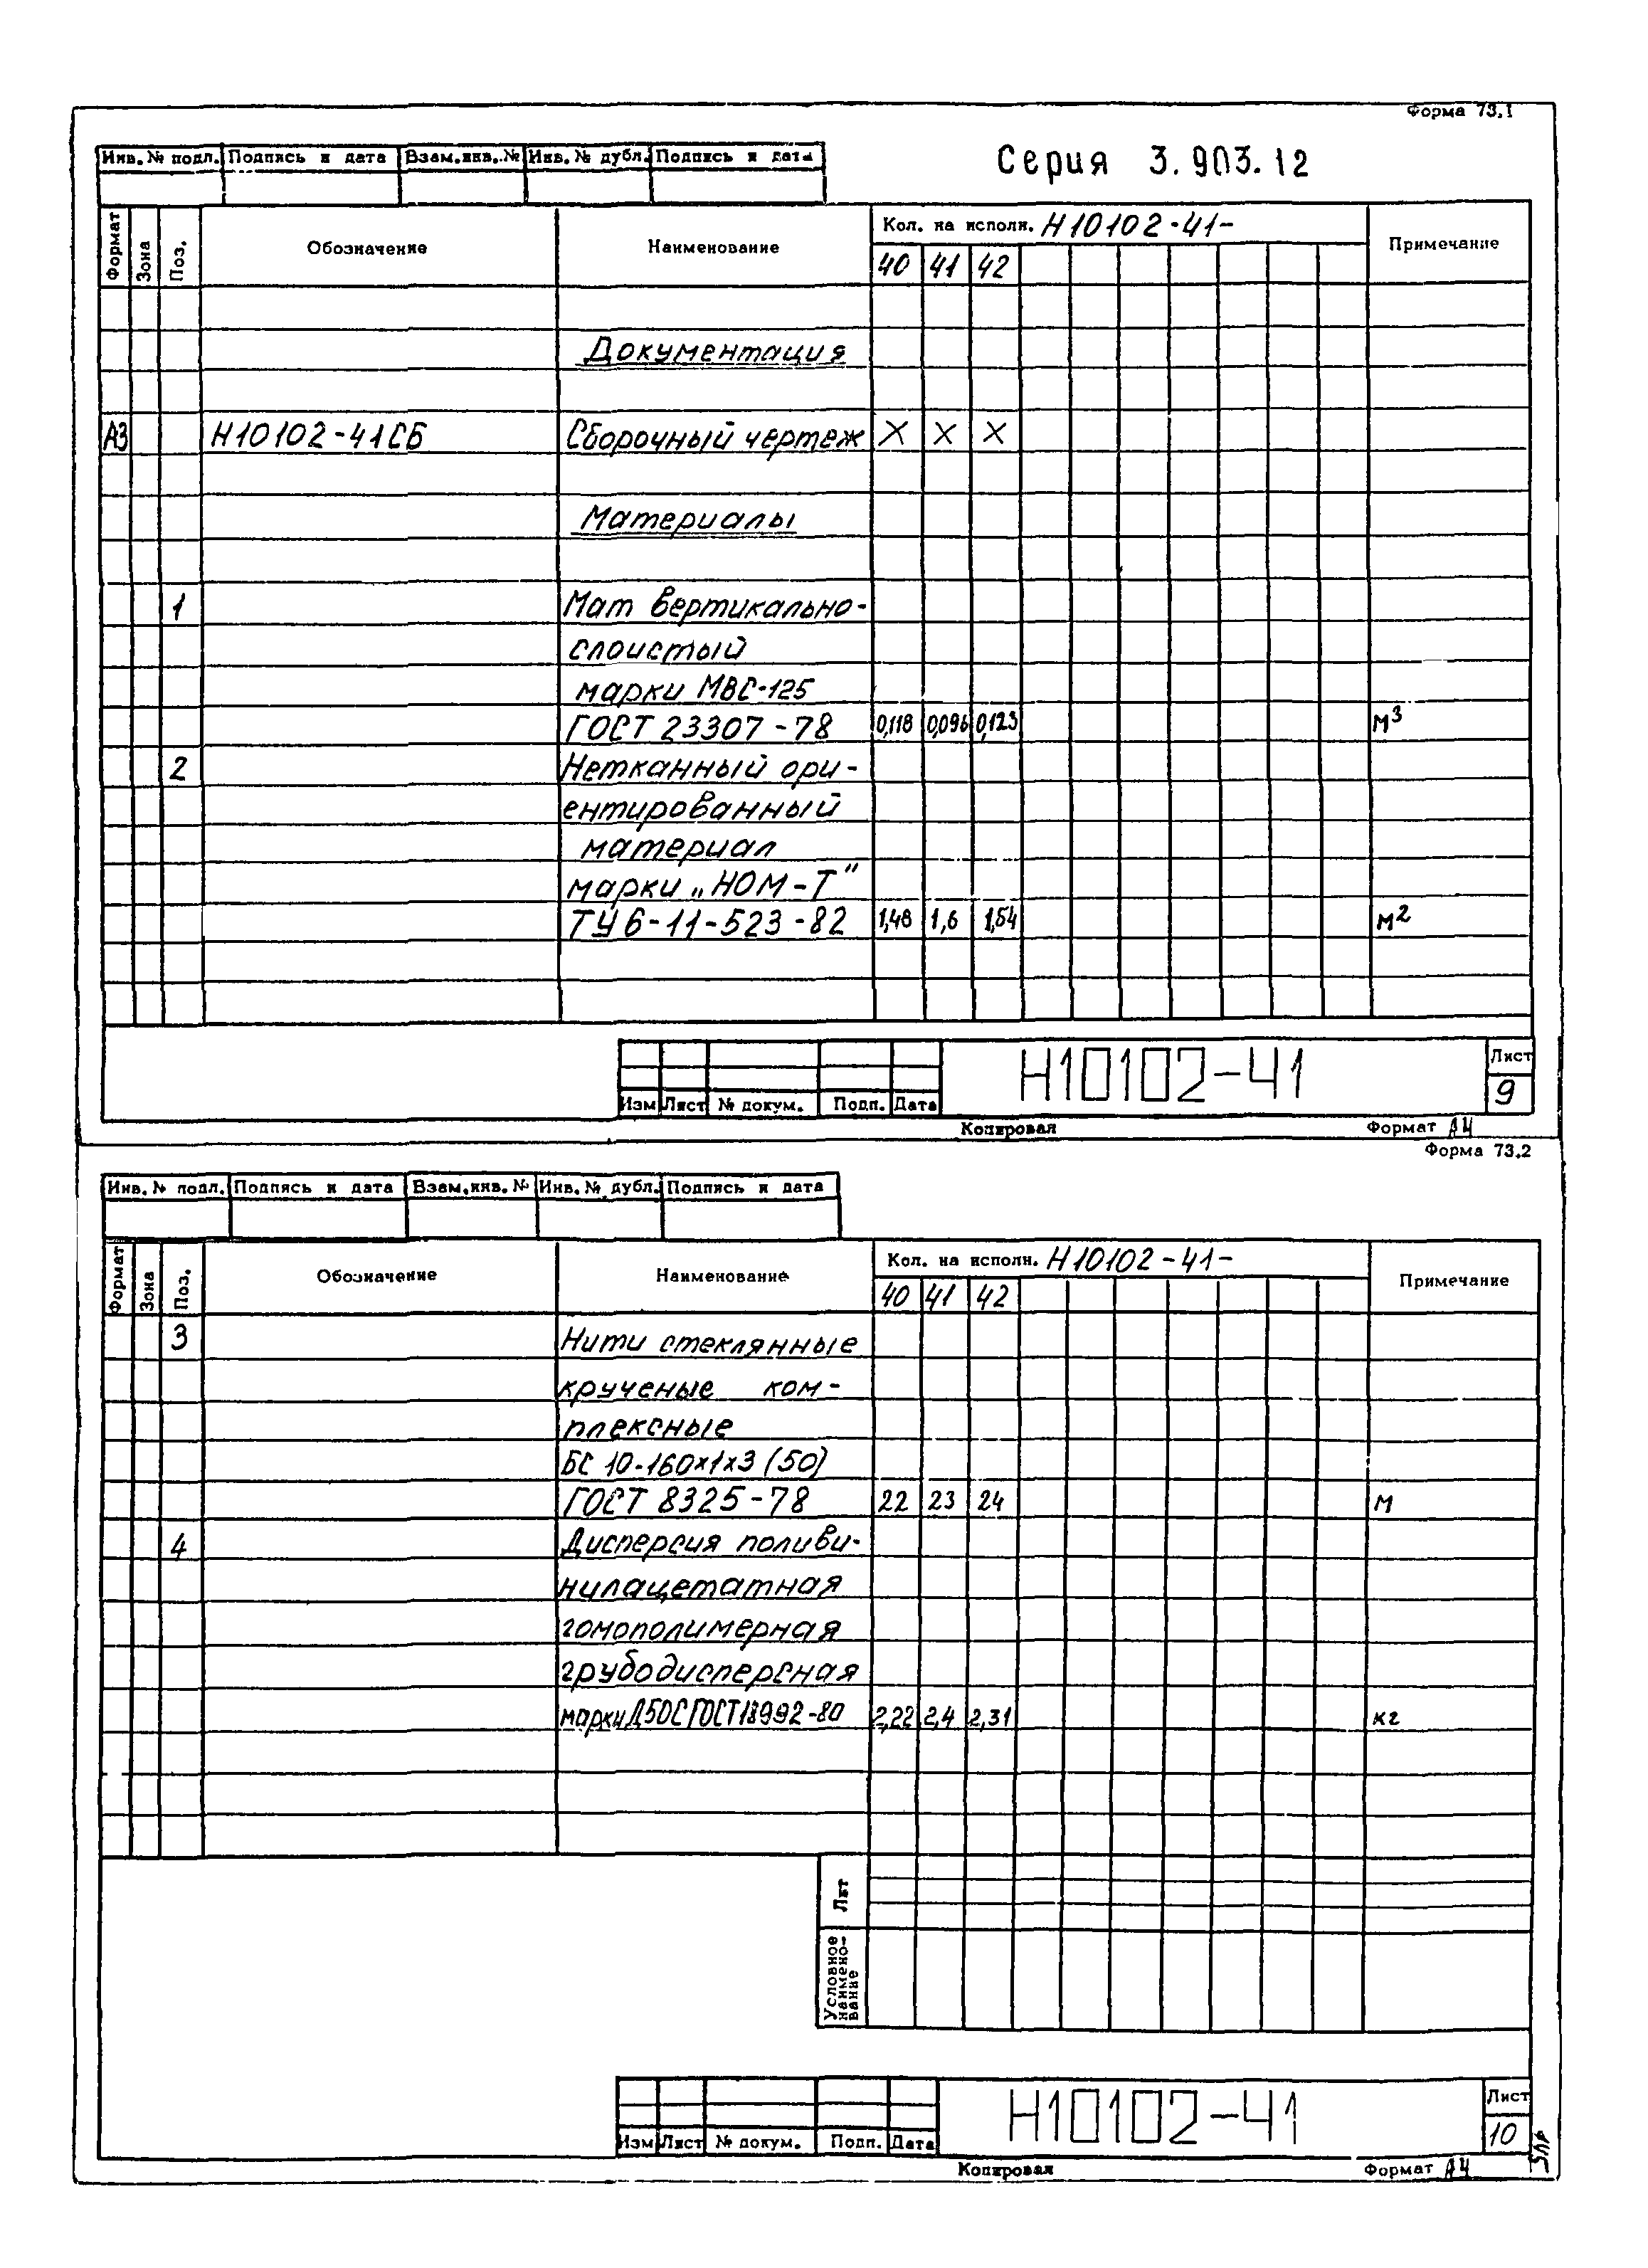 Форма 73.1
Инв. № подл. Подпись и дата Взам.инв.№ Инв. № дубл. Подпись и дата
Серия 3.903.12
Формат Зона Поз. Обозначение Наименование Кол. на исполн. Н10102-41- Примечание
40 41 42
Документация
А3 Н10102-41СБ Сборочный чертеж X X X
Материалы
1 Мат вертикально-
слоистый
марки МВС-125
ГОСТ 23307-78 0,118 0,096 0,123 м³
2 Нетканный ори-
ентированный
материал
марки „НОМ-Т"
ТУ 6-11-523-82 1,48 1,6 1,54 м²
Н10102-41
Лист
9
Изм Лист № докум. Подп. Дата
Копировал Формат А4
Форма 73.2
Инв. № подл. Подпись и дата Взам.инв. № Инв. № дубл. Подпись и дата
Формат Зона Поз. Обозначение Наименование Кол. на исполн. Н10102-41- Примечание
40 41 42
3 Нити стеклянные
крученые ком-
плексные
БС 10-160х1х3 (50)
ГОСТ 8325-78 22 23 24 м
4 Дисперсия поливи-
нилацетатная
гомополимерная
грубодисперсная
марки Д50С ГОСТ 18992-80 2,22 2,4 2,31 кг
Лит
Условное
наимено-
вание
Н10102-41
Лист
10
Изм Лист № докум. Подп. Дата
Копировал Формат А4